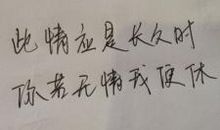 此情应是长久时
你若无情我便休